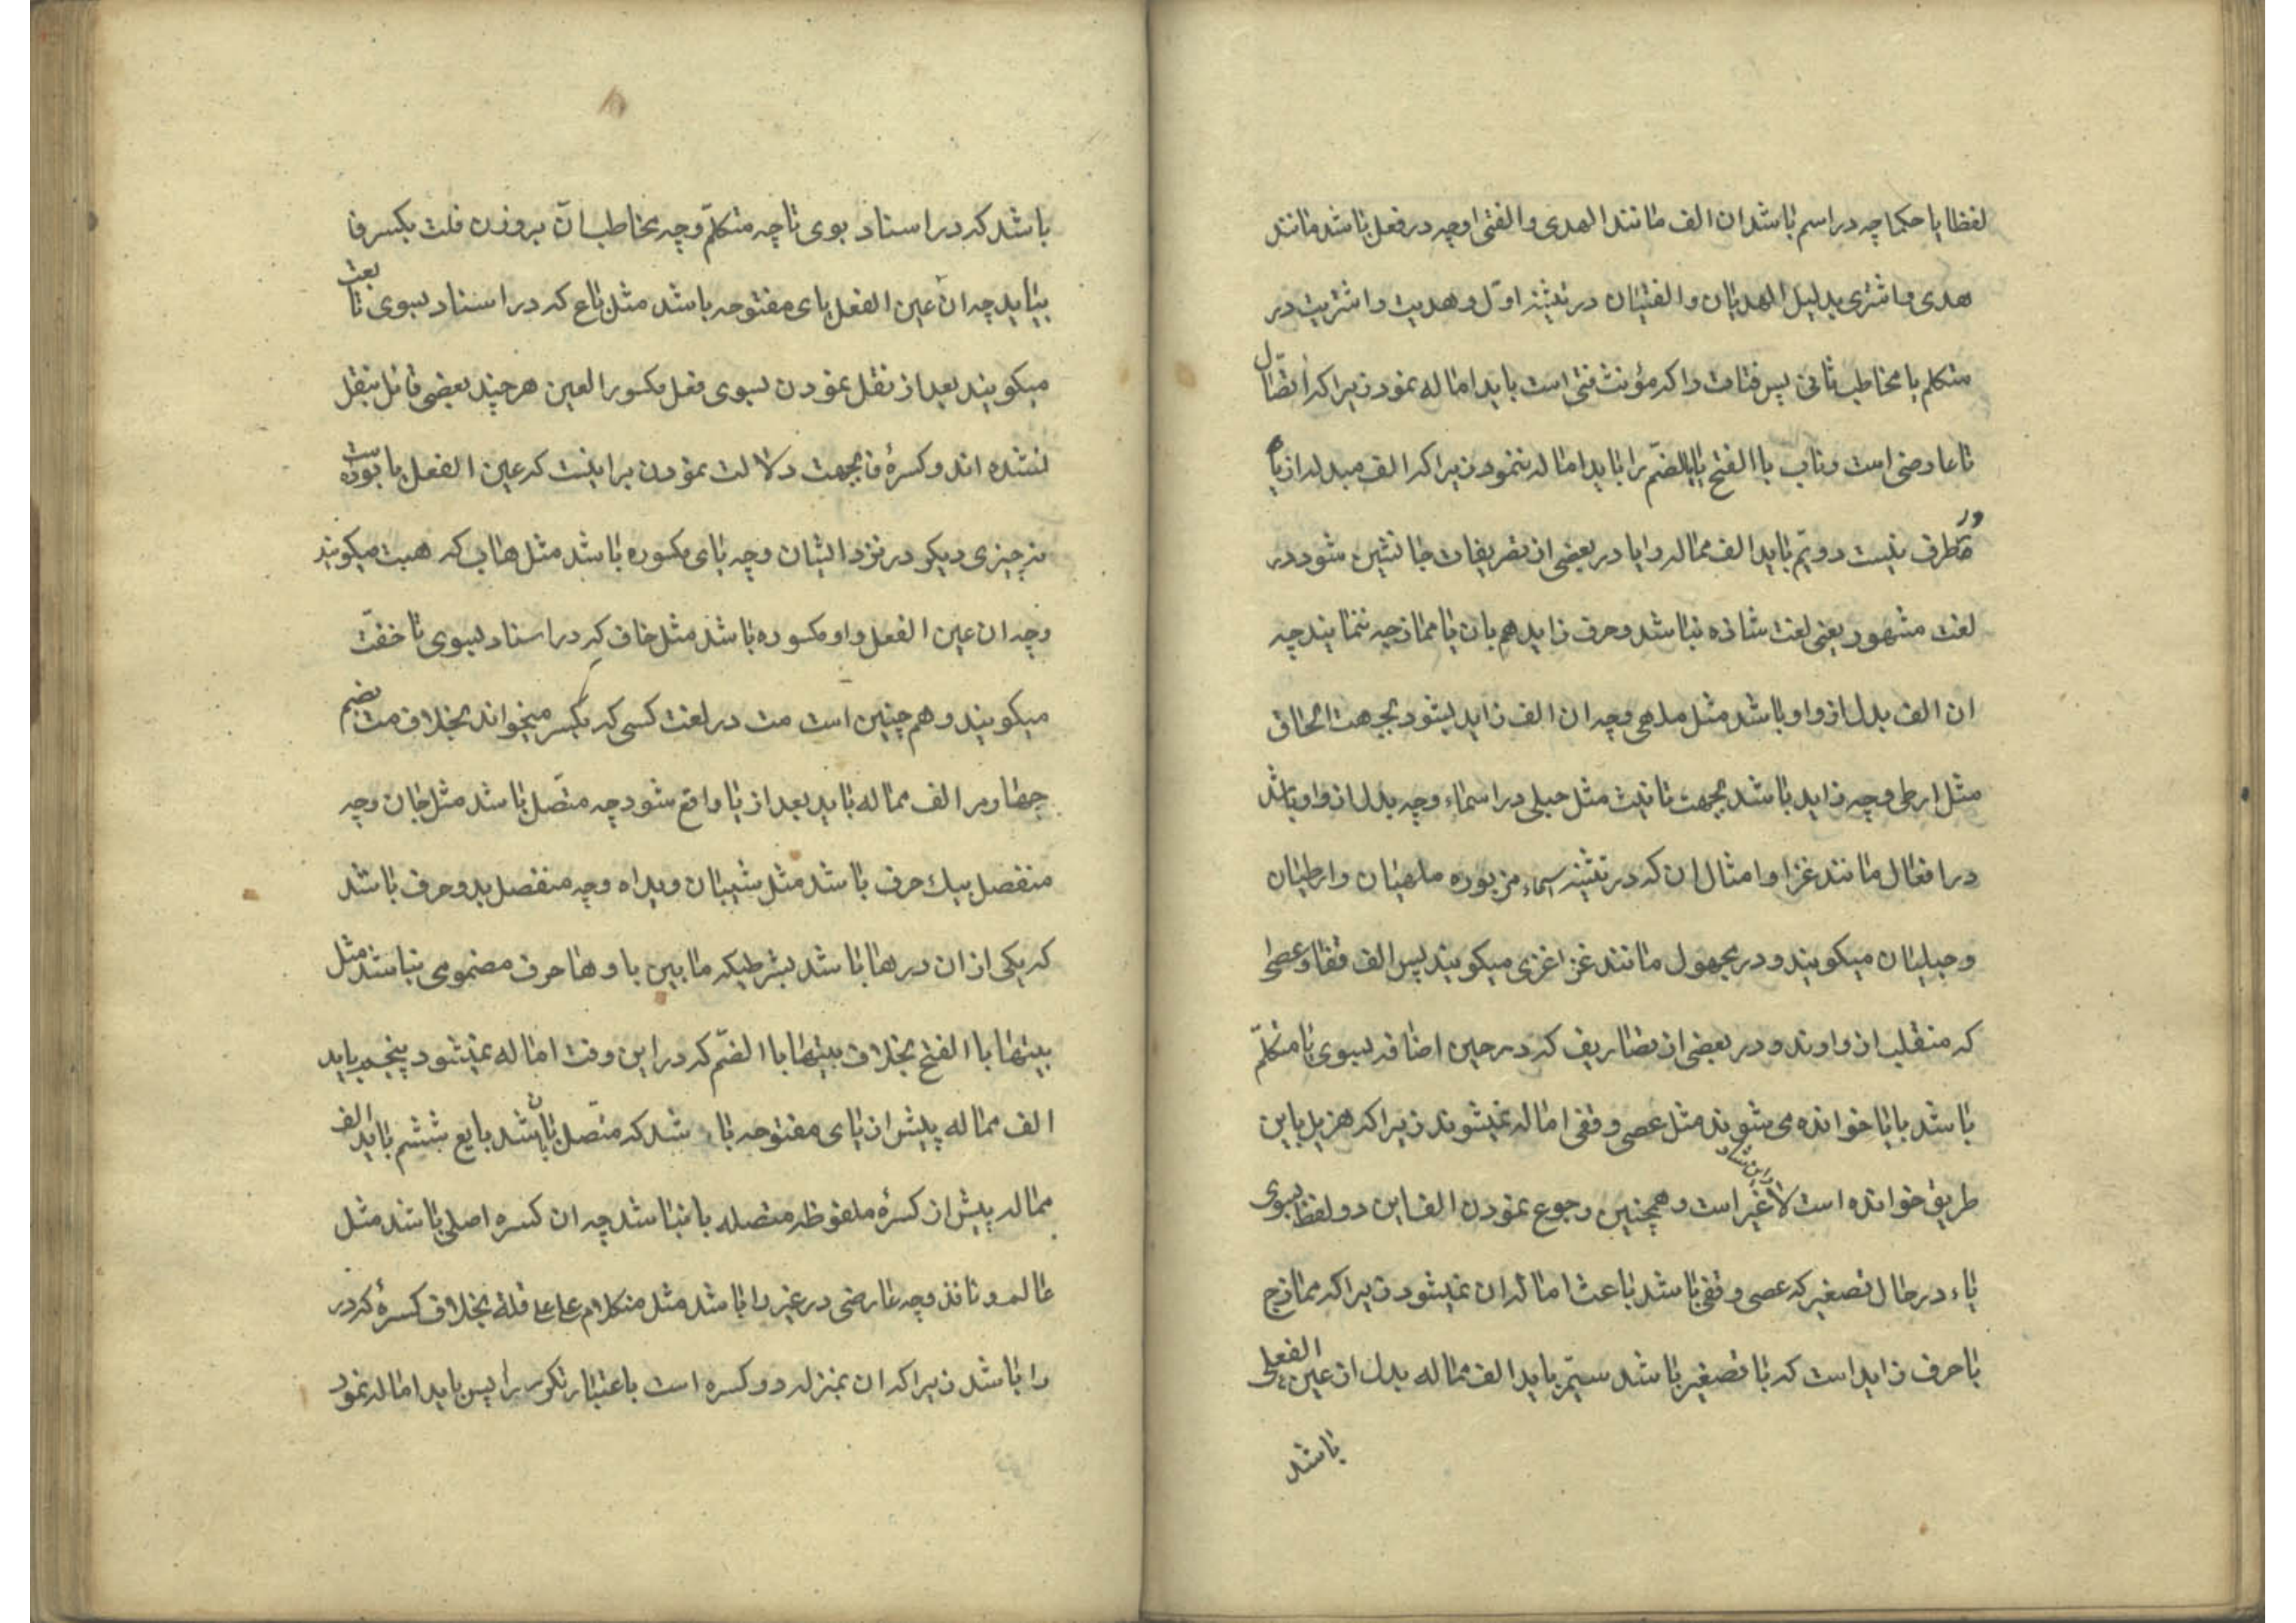 لفظا یا حکما چه در اسم باشد ان الف مانند الهدی والفتی اوچه در فعل باشد مانند
هدی و اشتری بدلیل الهدیان والفتیان در تثنیه اوّل و هدیت و اشتریت در
متکلم یا مخاطب ثانی پس فتات را که مؤنث فتی است باید اماله نمود زیرا که اتصال
تا عارضی است و ناب باالفتح یا بالضمّ را باید اماله ننمود زیرا که الف مبدله از یا
در طرف نیست دویّم باید الف مماله را یا در بعضی از تصریفات جانشین شود در
لغت مشهور یعنی لغت شاذه نباشد و حرف زاید هم بان یا ممازجه ننمایند چه
ان الف بدل از واو باشد مثل ملهی وچه ان الف زاید بشود بجهت الحاق
مثل ارطی وچه زاید باشد بجهت تانیث مثل حبلی در اسماء وچه بدل از واو باشد
در افعال مانند غزا و امثال ان که در تثنیه اسماء مزبوره ملهیان و ارطیان
و حبلیان میکویند و در مجهول مانند غزا غزی میکویند پس الف قفا و عصا
که منقلب از واوند و در بعضی از تصاریف که در حین اضافه بسوی یا متکلّم
باشد با یا خوانده می شوند مثل عصی و قفی اماله نمیشوند زیرا که هزیل باین
طریق خوانده است لا غیر و این شاذ است و همچنین رجوع نمودن الف این دو لفظ بسوی
یاء در حال تصغیر که عصی و قفی باشد باعث اماله ان نمیشود زیرا که ممازج
با حرف زاید است که یا تصغیر باشد سیّم باید الف مماله بدل از عین الفعلی
باشد
باشد که در اسناد بوی تا چه متکلّم وچه مخاطب آن بر وزن فلت بکسر فا
بیاید چه ان عین الفعل یای مفتوحه باشد مثل باع که در اسناد بسوی تا بعت
میکویند بعد از نقل نمودن بسوی فعل مکسور العین هر چند بعضی قائل بنقل
نشده اند و کسرهٔ فا بجهت دلالت نمودن بر اینست که عین الفعل یا بوده است
نه چیزی دیکر در نزد ایشان وچه یای مکسوره باشد مثل هاب که هبت میکویند
وچه ان عین الفعل واو مکسوره باشد مثل خاف که در اسناد بسوی تا خفت
میکویند و هم چنین است مت در لغت کسی که بکسر میخواند بخلاف مت بضم
چهارم الف مماله باید بعد از یا واقع شود چه متّصل باشد مثل بیان وچه
منفصل بیك حرف باشد مثل شیبان و یداه وچه منفصل بدو حرف باشد
که یکی از ان درها باشد بشرطیکه ما بین یا وها حرف مضمومی نباشد مثل
بیتها باالفتح بخلاف بیتها باالضمّ که در این وقت اماله نمیشود پنجم باید
الف مماله پیش از یای مفتوحه باشد که متّصل باان باشد بایع ششم باید الف
مماله پیش از کسرهٔ ملفوظه متصله یا نباشد چه ان کسره اصلی باشد مثل
عالم و نافذ وچه عارضی در غیر را باشد مثل من کلام علی عاقلة بخلاف کسرهٔ که در
را باشد زیرا که ان بمنزله دو کسره است باعتبار تکریر را پس باید اماله نمود